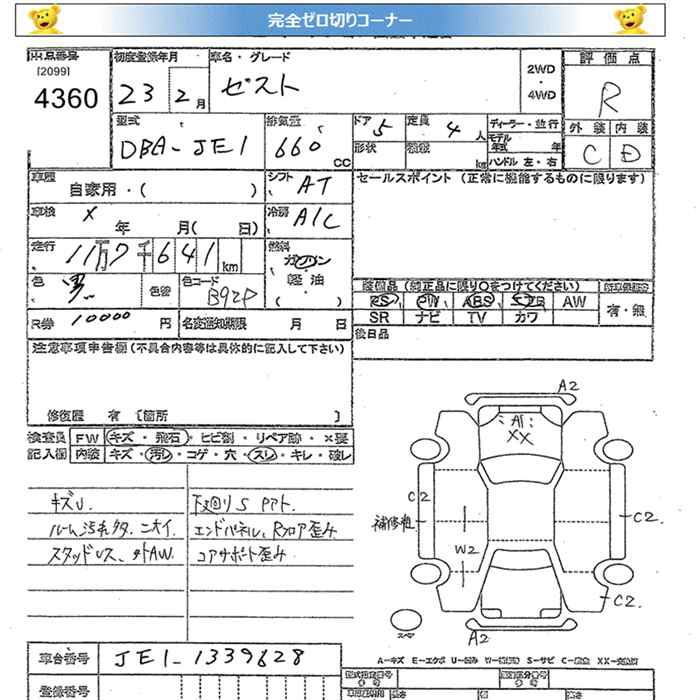 完全ゼロ切りコーナー
出品番号 初度登録年月 車名・グレード 評価点
[2099]
4360 23 2月 ゼスト 2WD・4WD R
型式 排気量 ドア 定員 ディーラー・並行 外装 内装
DBA-JE1 660 CC 5 4人 モデル年式 年 C D
形状 km ハンドル 左・右
車歴 自家用・( ) シフト AT セールスポイント(正常に機能するものに限ります)
車検 X 年 月( 日) 冷房 A/C
走行 11万7千641km 燃料 ガソリン
軽油
( )
色 黒 色替 色コード B92P
装備品(純正品に限り○をつけてください)
PS PW ABS エアB AW 有・無
SR ナビ TV カワ
R券 10000円 名変通知期限 月 日 後日品
注意事項申告欄(不具合内容等は具体的に記入して下さい)
修復歴 有 〔箇所 〕
検査員 FW キズ・飛石・ヒビ割・リペア跡・×要
記入欄 内装 キズ・汚レ・コゲ・穴・スレ・キレ・破レ
キズU.
ルーム汚れタタ、ニオイ.
スタッドレス、外AW.
下廻りS
エンドパネル、Rフロア歪み
コアサポート歪み
A2
A1
XX
C2
補修粗
W2
C2.
C2.
A2
スペア
A-キズ E-エクボ U-凹み S-サビ C-腐食 XX-交換済
車台番号 JE1-1339628
登録番号